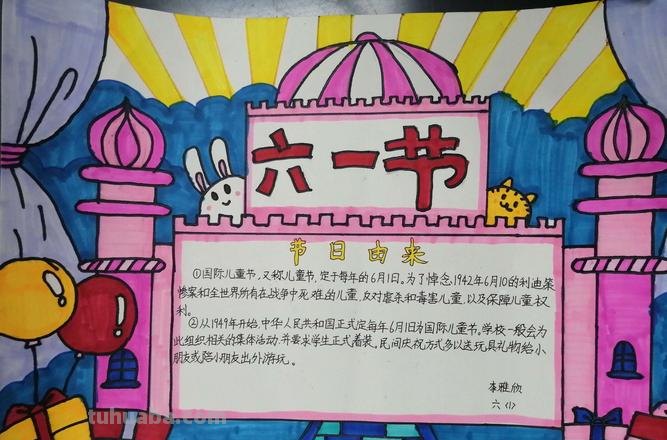 六一节
节日由来
①国际儿童节,又称儿童节,定于每年的6月1日。为了悼念1942年6月10的利迪策
惨案和全世界所有在战争中死难的儿童,反对虐杀和毒害儿童,以及保障儿童权
利。
②从1949年开始,中华人民共和国正式定每年6月1日为国际儿童节。学校一般会为
此组织相关的集体活动,并要求学生正式着装。民间庆祝方式多以送玩具礼物给小
朋友或陪小朋友出外游玩。
李雅欣
六〈1〉
tuhuaba.com